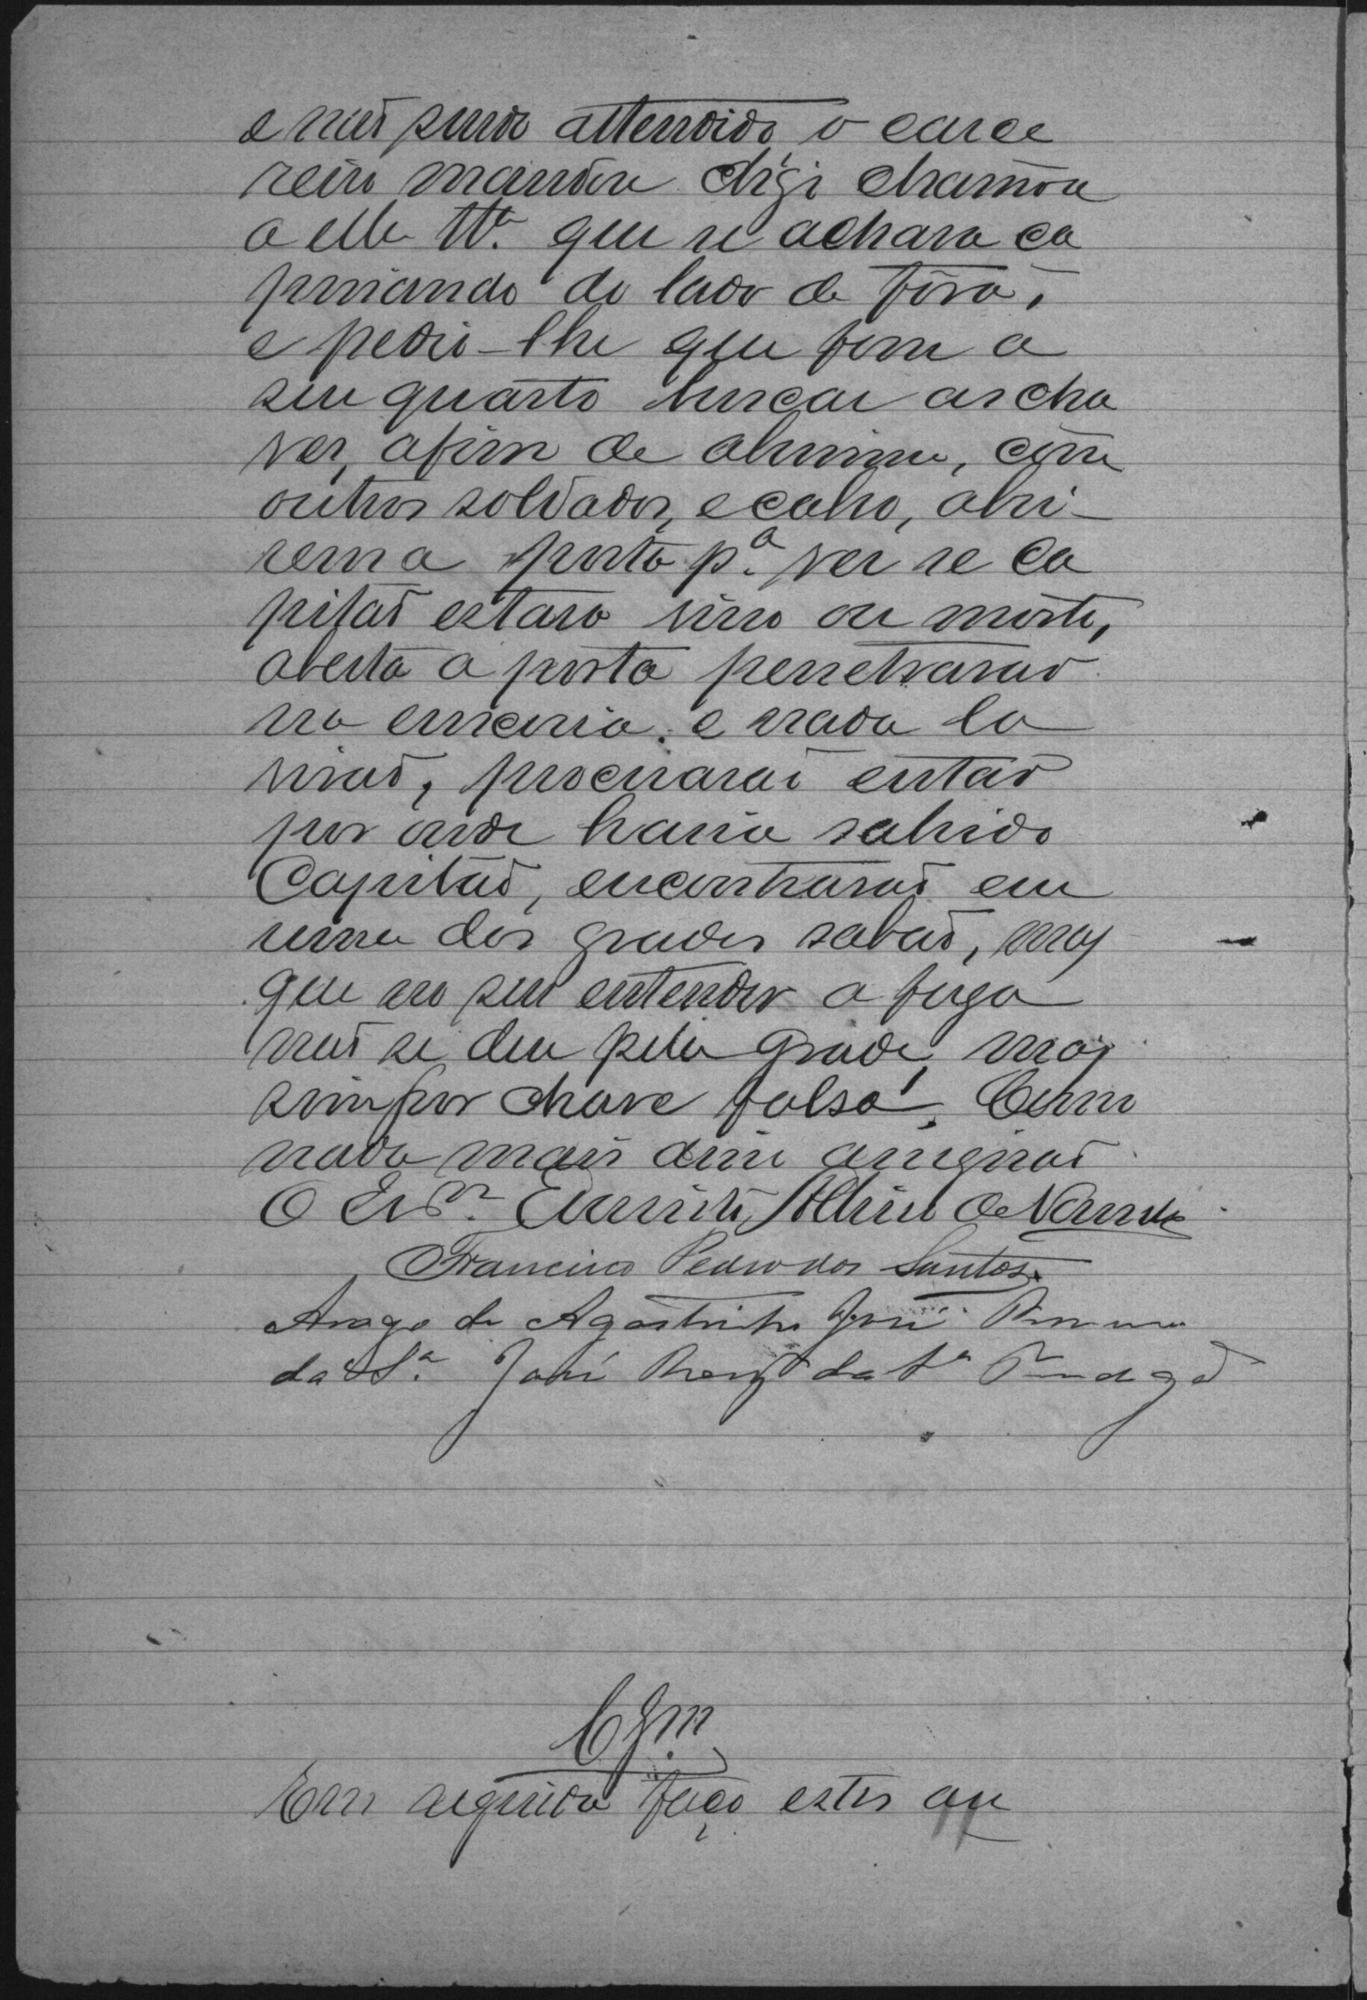 e não sendo attendido, o carce
reiro mandou digi chamou
a elle Ttª. que se achava ca
pinando do lado de fóra,
e pedio-lhe que fosse a
seu quarto buscar as cha
ves, afim de abrirem, com
outros soldados, e cabo, abri-
rem a porta pª. ver se Ca
pitão estava vivo ou morto,
aberta a porta penetrarão
na enxovia. e nada la
virão, procurarão então
por onde havia sahido
Capitão, encontrarão em
uma das grades sabão, mas
que no seu entender a fuga
não se deu pela grade, mas
sim por chave falsa. E como
nada mais disse assignão
O Esc.am Evaristo Albino de
Francisco Pedro dos Santos.
Arogo de Agostinho José
da Sª. José da Sª
Em seguida faço estes au